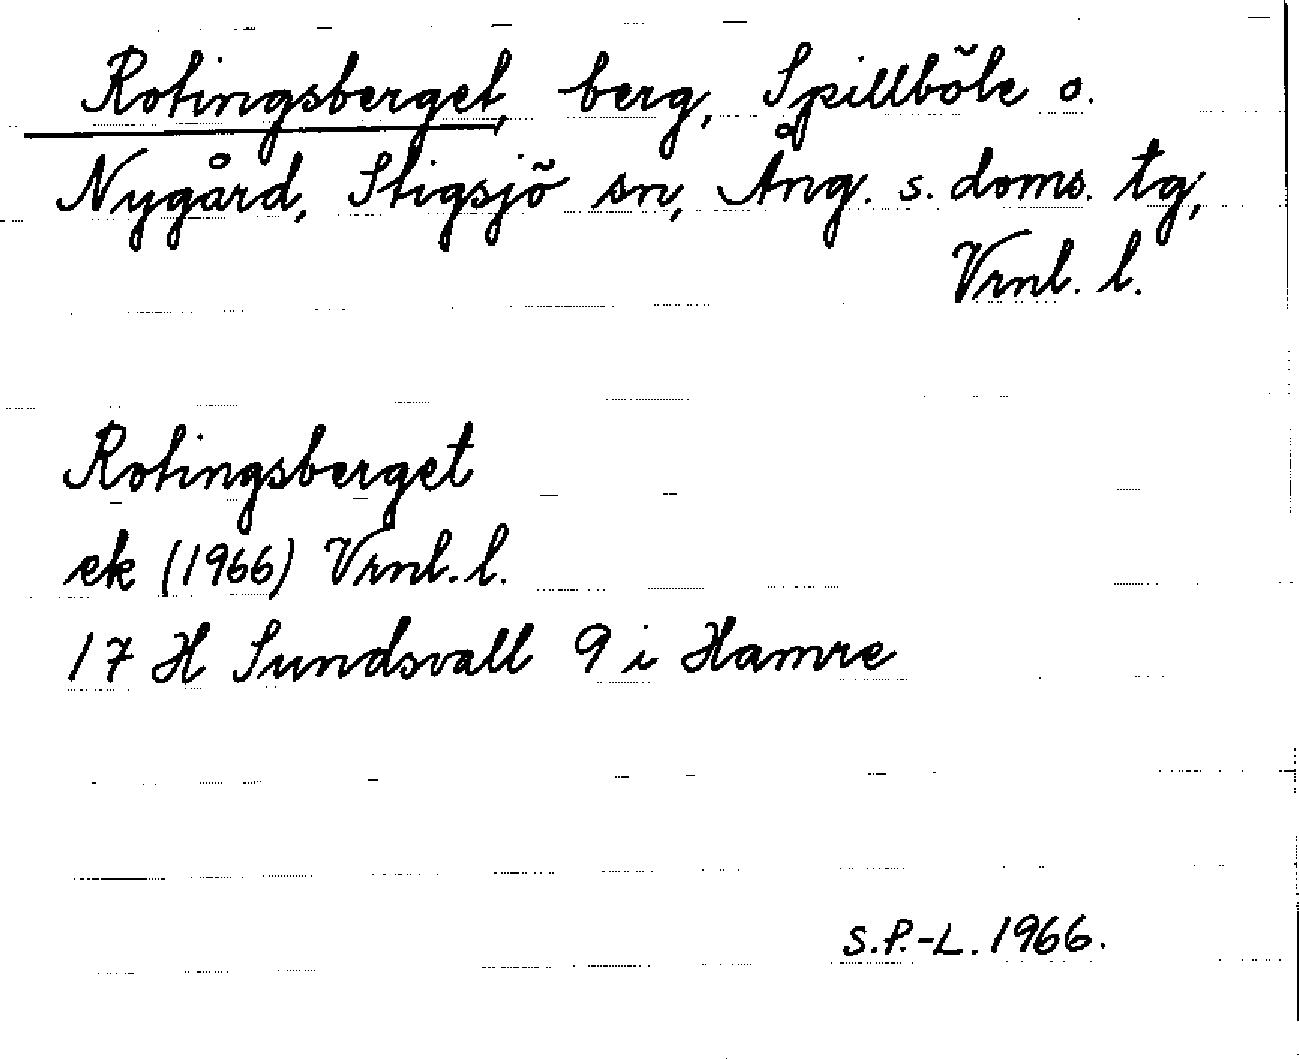 Rotingsberget, berg, Spillböle o.
Nygård, Stigsjö sn, Ång. s. doms. tg,
Vrnl. l.
Rotingsberget
ek (1966) Vrnl. l.
17 H Sundsvall 9 i Hamre
S.P.-L. 1966.